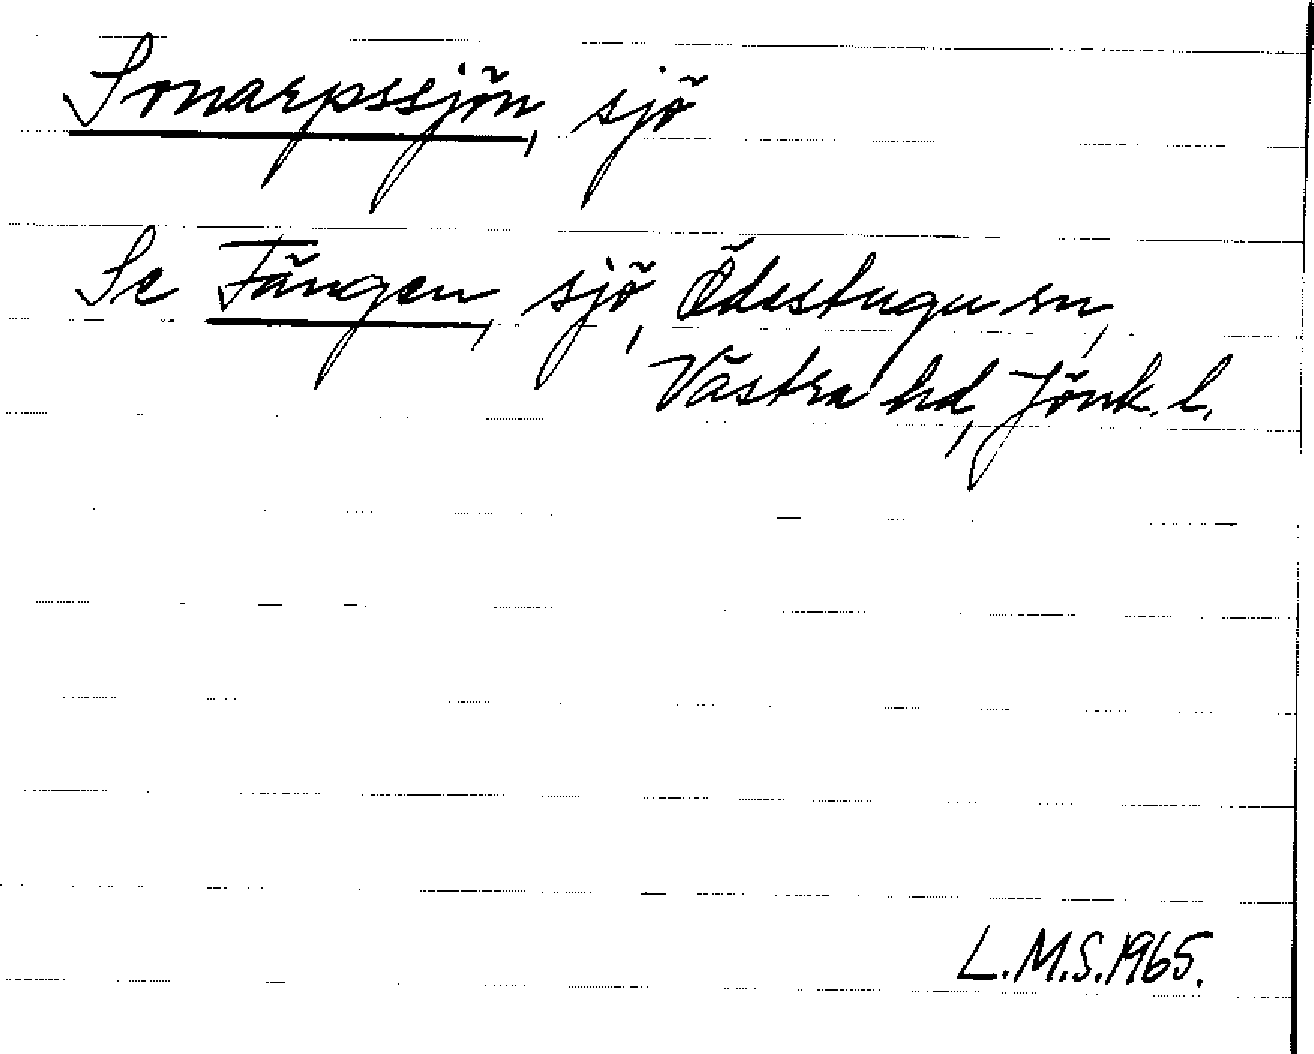 Sonarpssjön, sjö
Se Fängen, sjö, Ödestugu sn,
Västra hd, Jönk. l.
L.M.S. 1965.